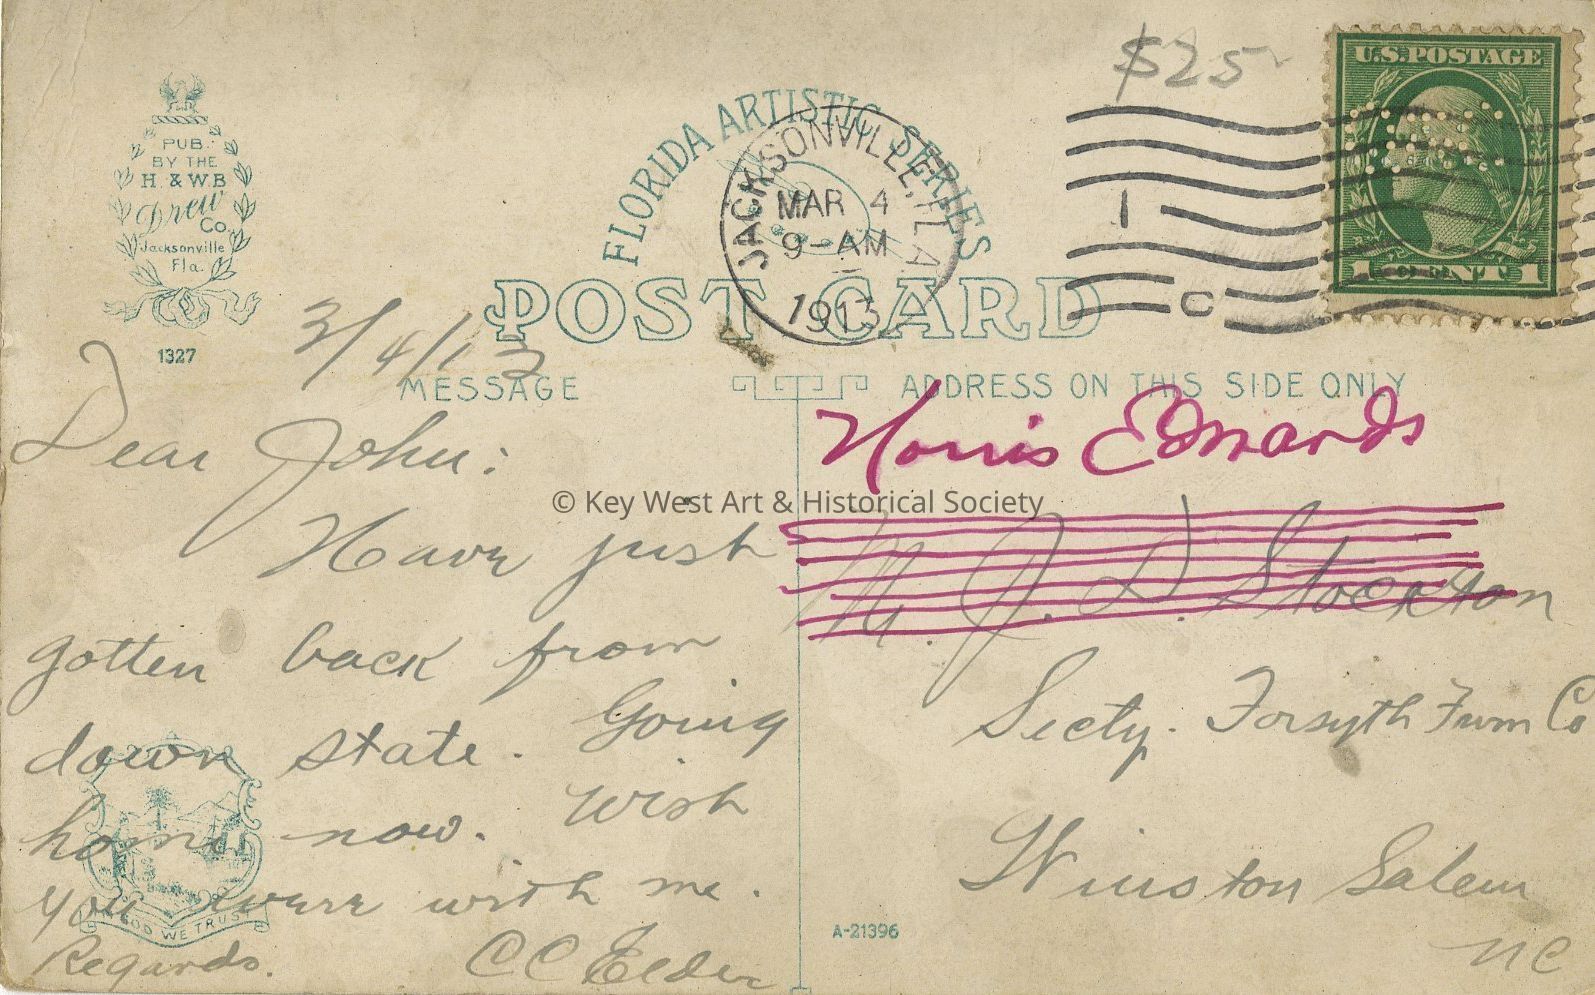 $25
U.S. POSTAGE
1 CENT 1
PUB.
BY THE
H. & W.B
Drew
Co.
Jacksonville
Fla.
1327
FLORIDA ARTISTIC SERIES
JACKSONVILLE, FLA
MAR 4
9-AM
1913
1
C
POST CARD
3/4/13
MESSAGE
ADDRESS ON THIS SIDE ONLY
Dear John:
Have just
gotten back from
down state. Going
home now. Wish
you were with me.
Regards. C C Elder
GOD WE TRUST
Norris Edwards
© Key West Art & Historical Society
Mr. J. D. Stockton
Secty. Forsyth Furn Co
Winston Salem
NC
A-21396